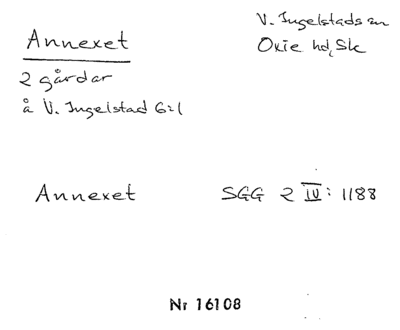 Annexet
V. Ingelstads sn
Oxie hd, Sk
2 gårdar
å V. Ingelstad 6:1
Annexet SGG 2 IV: 1188
Nr 16108